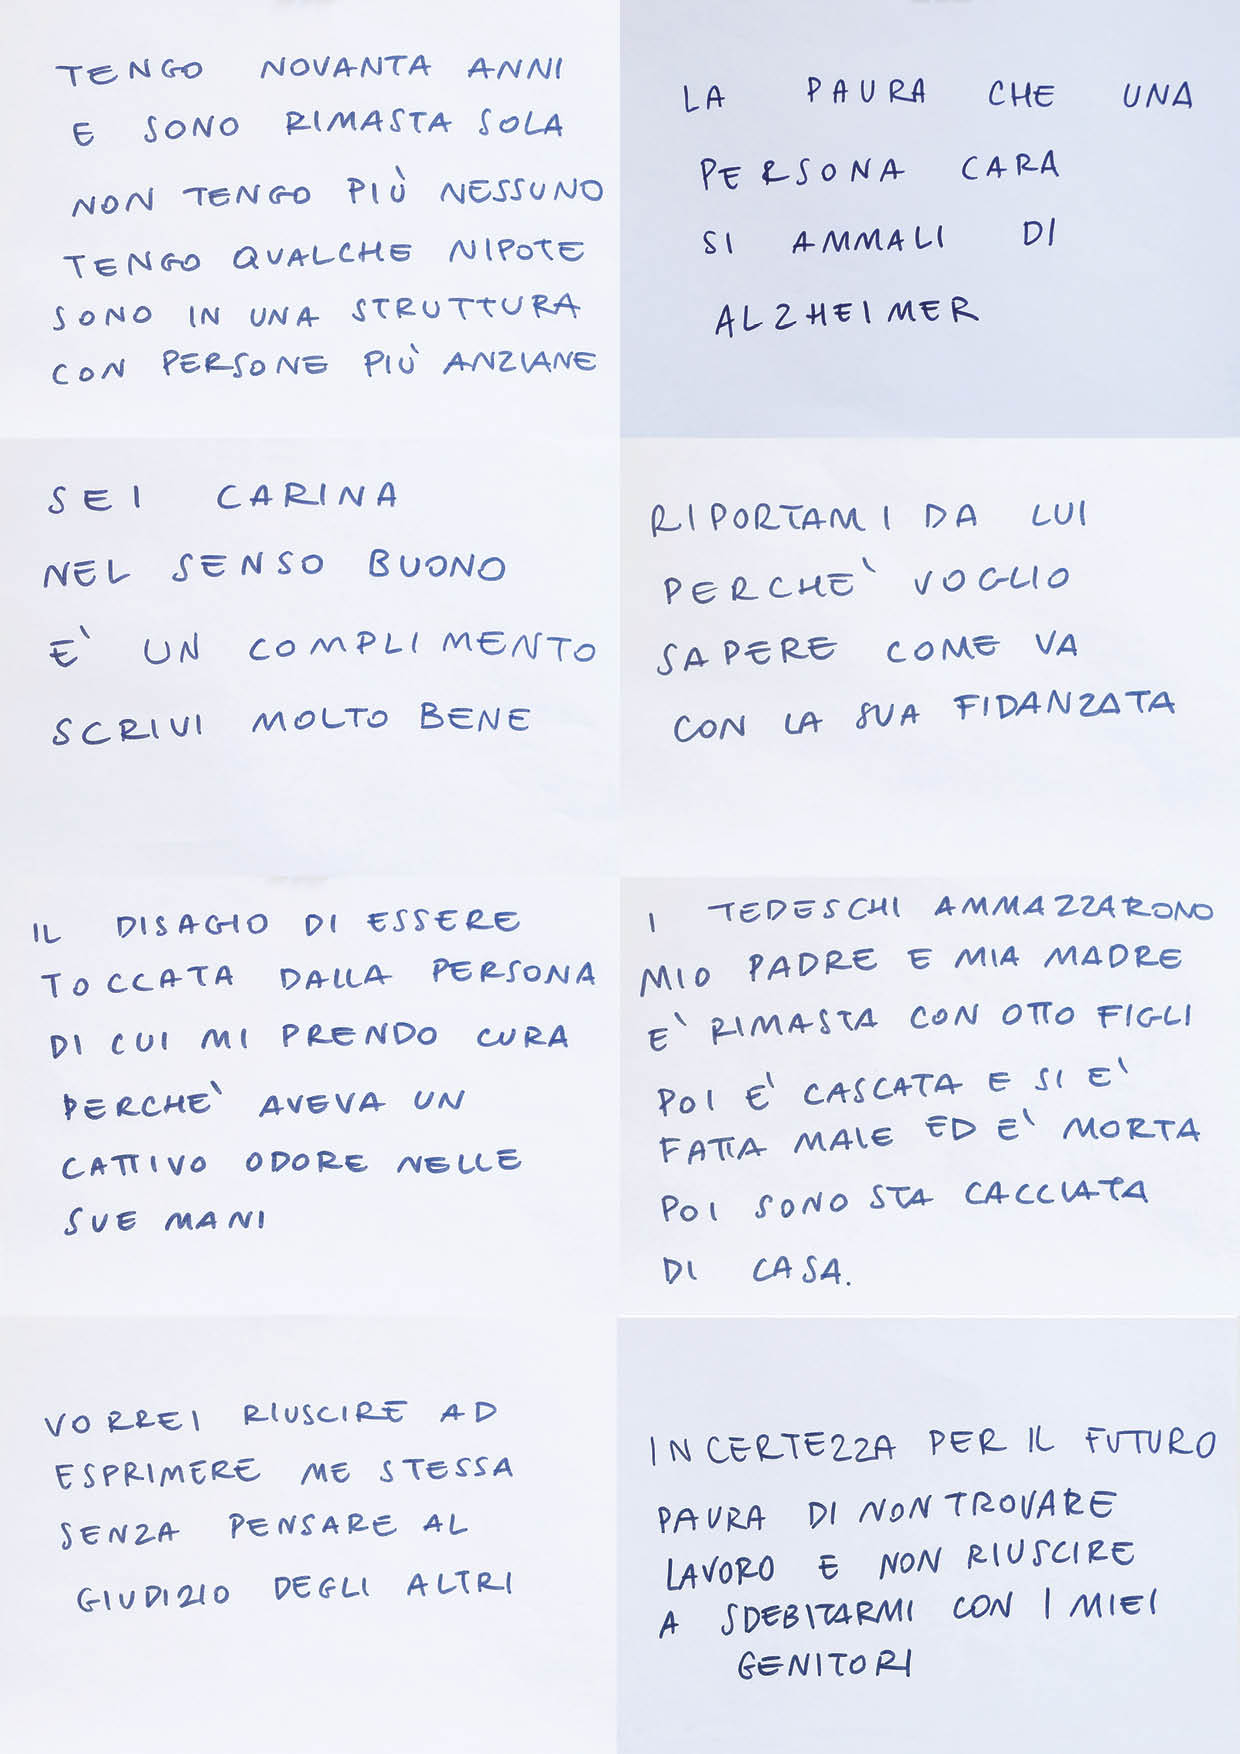 TENGO NOVANTA ANNI
E SONO RIMASTA SOLA
NON TENGO PIÙ NESSUNO
TENGO QUALCHE NIPOTE
SONO IN UNA STRUTTURA
CON PERSONE PIÙ ANZIANE
LA PAURA CHE UNA
PERSONA CARA
SI AMMALI DI
ALZHEIMER
SEI CARINA
NEL SENSO BUONO
E` UN COMPLIMENTO
SCRIVI MOLTO BENE
RIPORTAMI DA LUI
PERCHE` VOGLIO
SAPERE COME VA
CON LA SUA FIDANZATA
IL DISAGIO DI ESSERE
TOCCATA DALLA PERSONA
DI CUI MI PRENDO CURA
PERCHE` AVEVA UN
CATTIVO ODORE NELLE
SUE MANI
I TEDESCHI AMMAZZARONO
MIO PADRE E MIA MADRE
E` RIMASTA CON OTTO FIGLI
POI E` CASCATA E SI E`
FATTA MALE ED E` MORTA
POI SONO STA CACCIATA
DI CASA.
VORREI RIUSCIRE AD
ESPRIMERE ME STESSA
SENZA PENSARE AL
GIUDIZIO DEGLI ALTRI
INCERTEZZA PER IL FUTURO
PAURA DI NON TROVARE
LAVORO E NON RIUSCIRE
A SDEBITARMI CON I MIEI
GENITORI